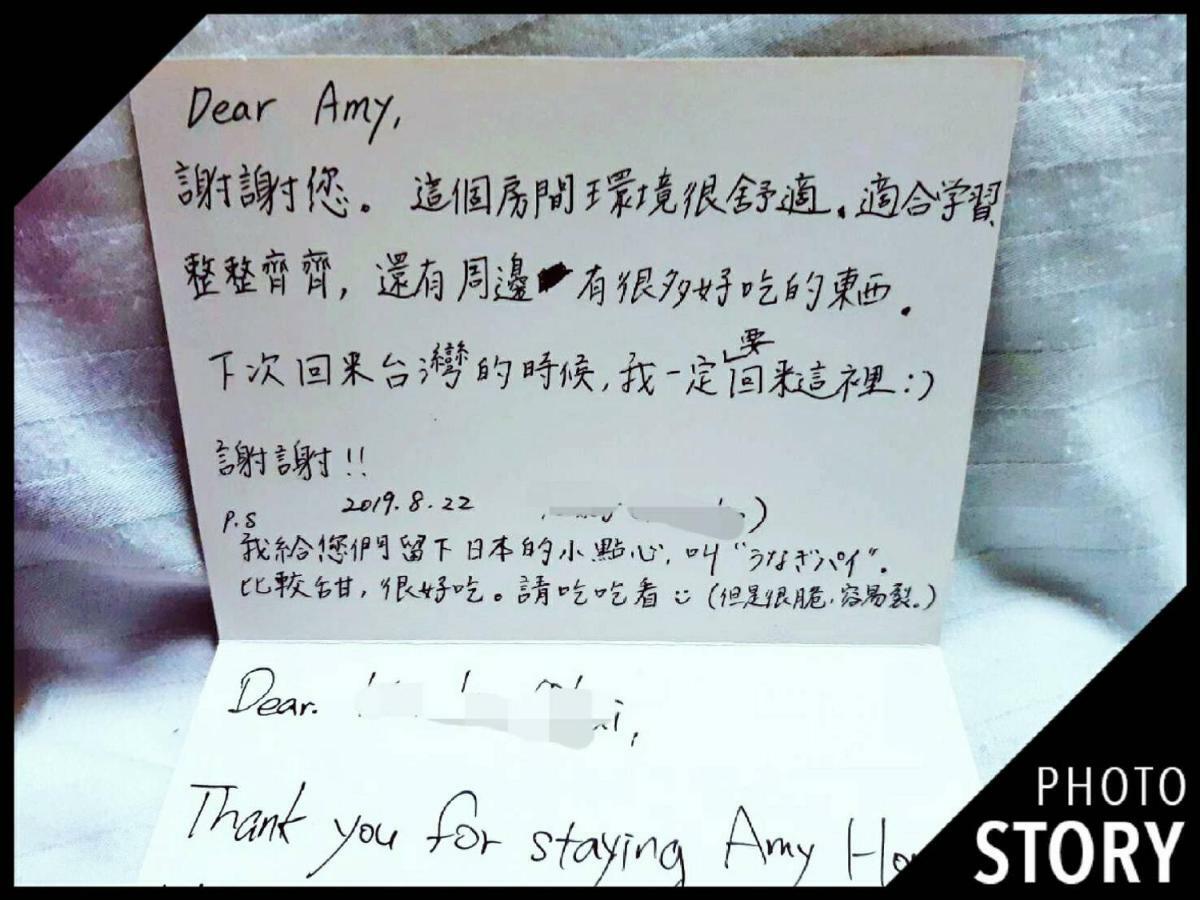 Dear Amy,
謝謝您。這個房間環境很舒適。適合学習
整整齊齊, 還有周邊有很多好吃的東西.
下次回来台灣的時候, 我一定要回来這裡 :)
謝謝!!
2019.8.22
P.S
我給您們留下日本的小點心, 叫 "うなぎパイ".
比較甜, 很好吃。請吃吃看 (但是很脆, 容易裂。)
Dear.
Thank you for staying Amy
PHOTO
STORY